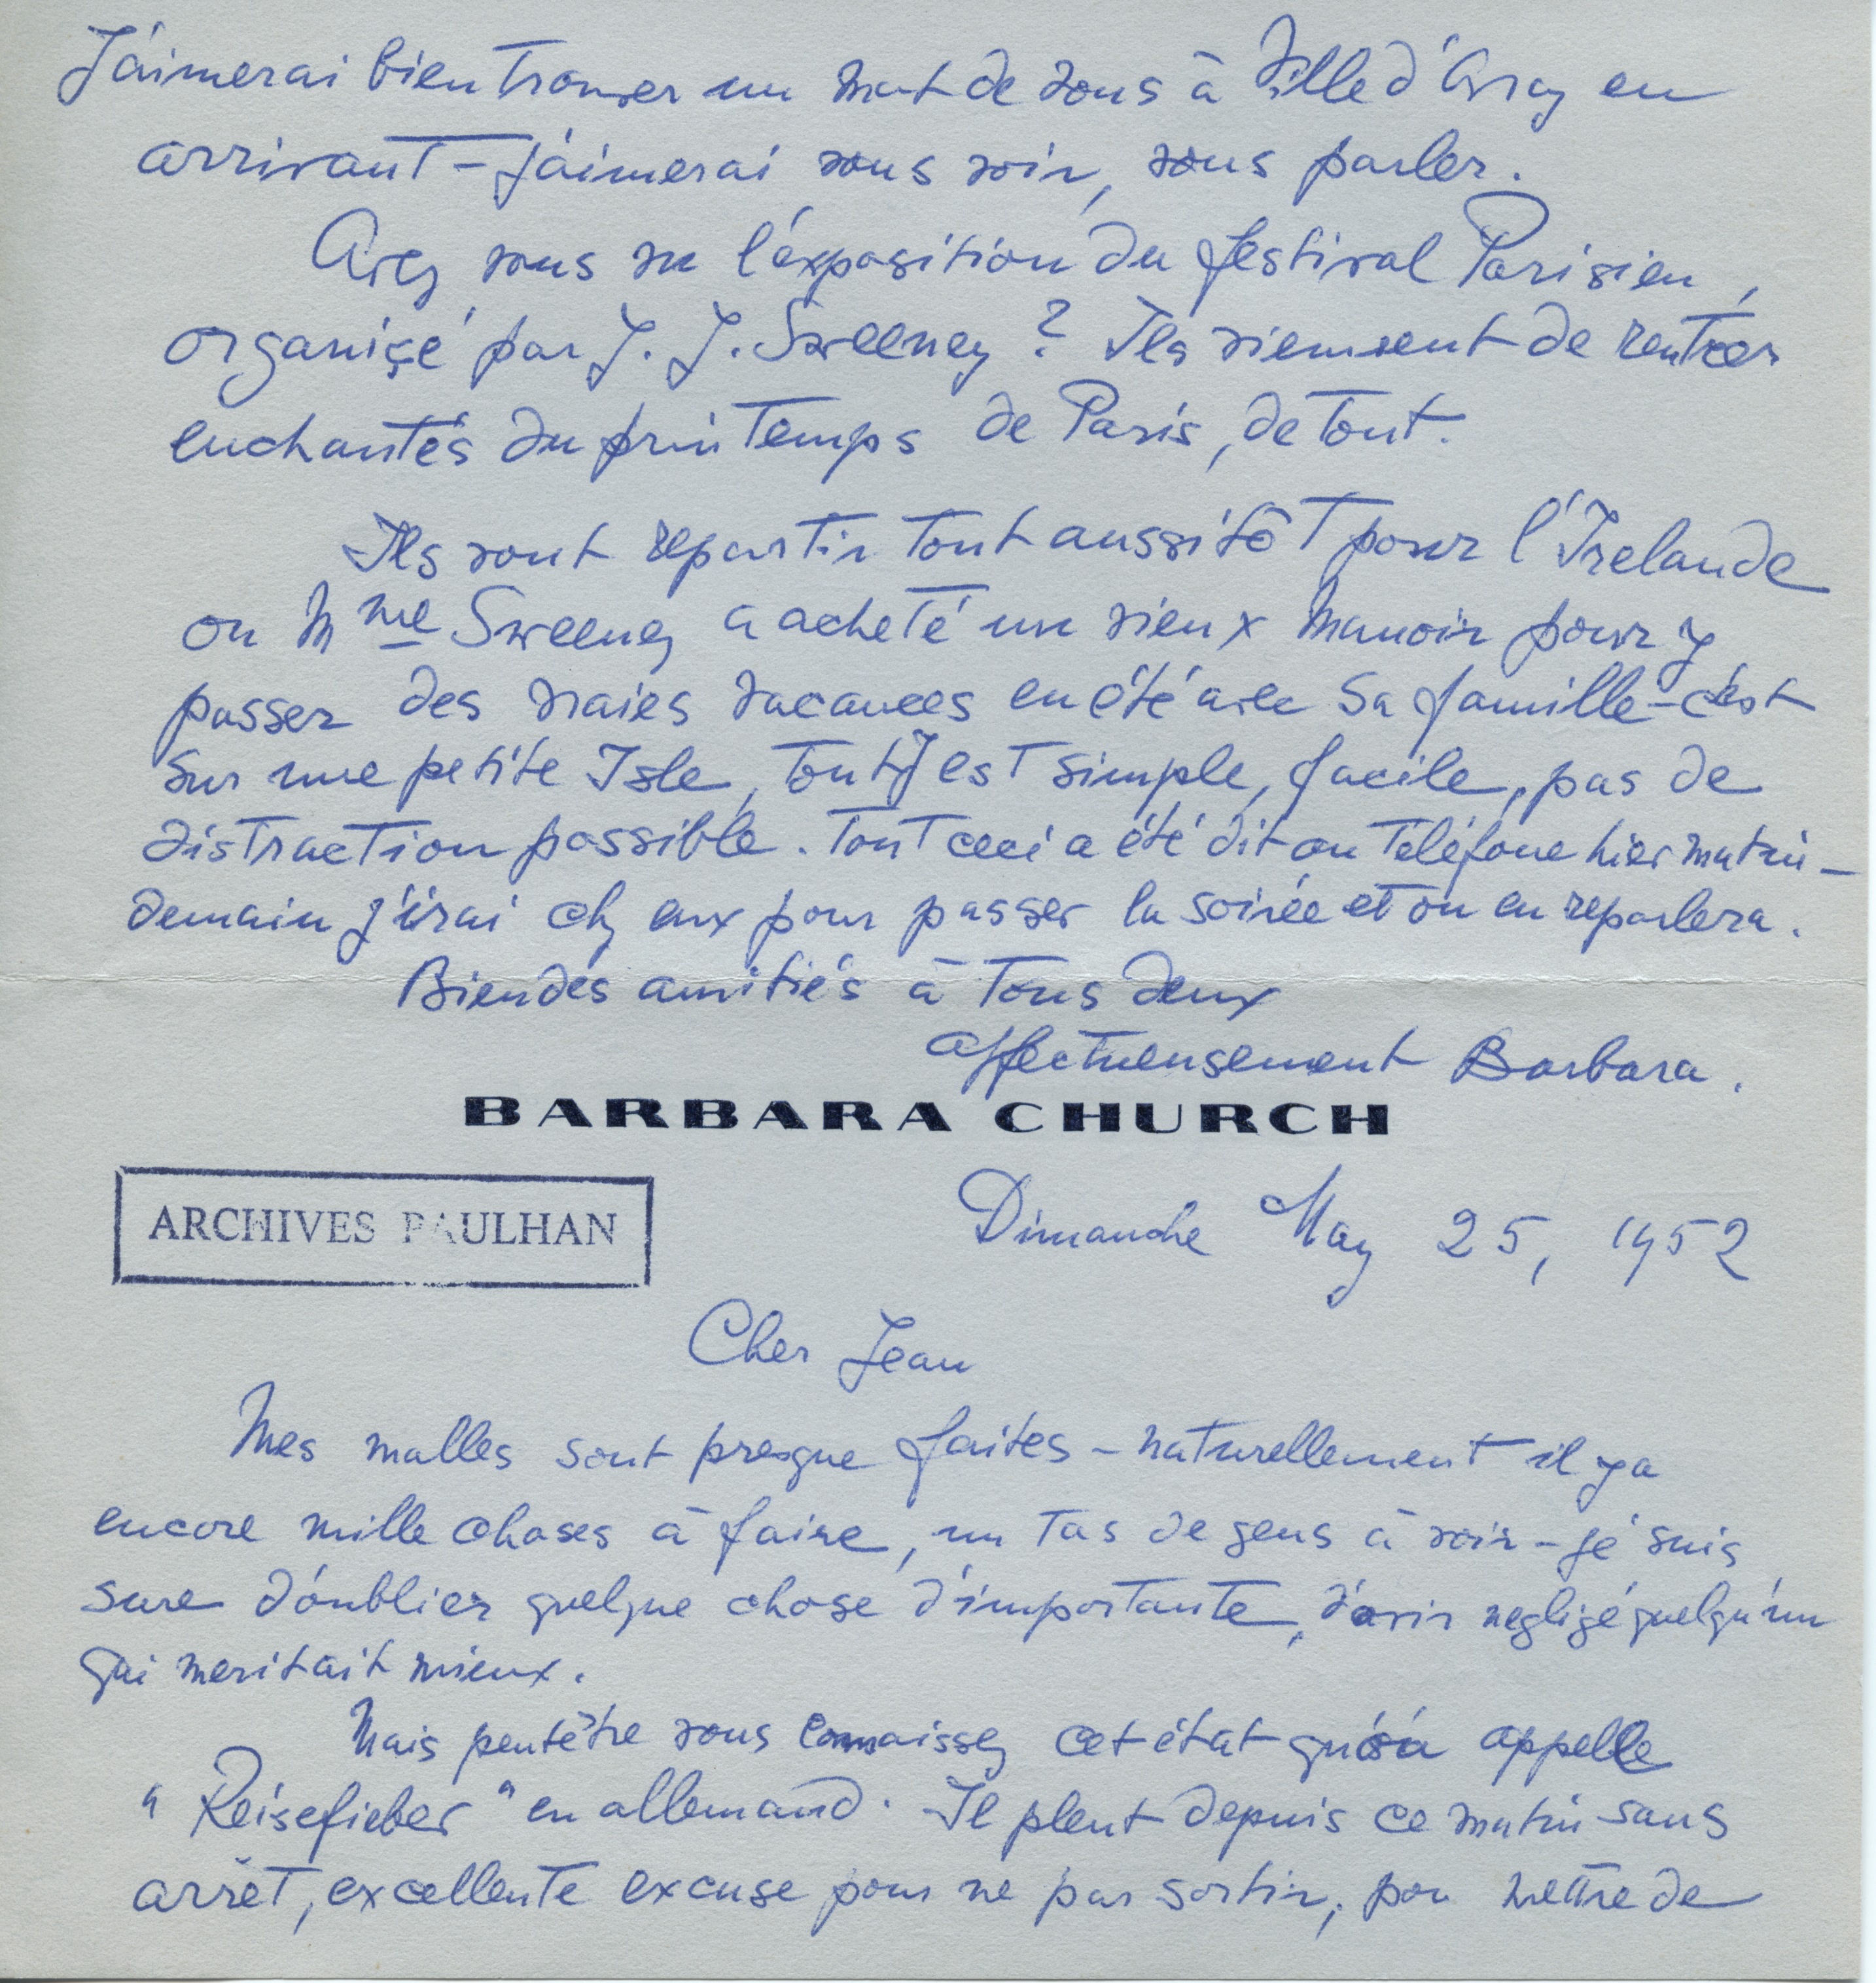 J'aimerai bien trouver un mot de vous à Ville d'Avray en
arrivant – j'aimerai vous voir, vous parler.
Avez vous vu l'éxposition du festival Parisien,
organisé par J. J. Sweeney ? Ils viennent de rentrer
enchantés du printemps de Paris, de tout.
Ils vont repartir tout aussitôt pour l'Irelande
ou Mme Sweeney a acheté un vieux manoir pour y
passer des vraies vacances en été avec sa famille – c'est
sur une petite Isle, tout y est simple, facile, pas de
distraction possible. Tout ceci a été dit au téléfone hier matin –
demain j'irai chz eux pour passer la soirée et on en reparlera.
Bien des amitiés à tous deux
affectueusement Barbara.
BARBARA CHURCH
ARCHIVES PAULHAN
Dimanche May 25, 1952
Cher Jean
Mes malles sont presque faites – naturellement il y a
encore mille choses à faire, un tas de gens à voir – je suis
sure d'oublier quelque chose d'importante, d'avir negligé quelqu'un
qui meritait mieux.
Mais peutètre vous connaissez cet état qu'on appelle
"Reisefieber" en allemand. Il pleut depuis ce matin sans
arrèt, excellente excuse pour ne pas sortir, pou mettre de